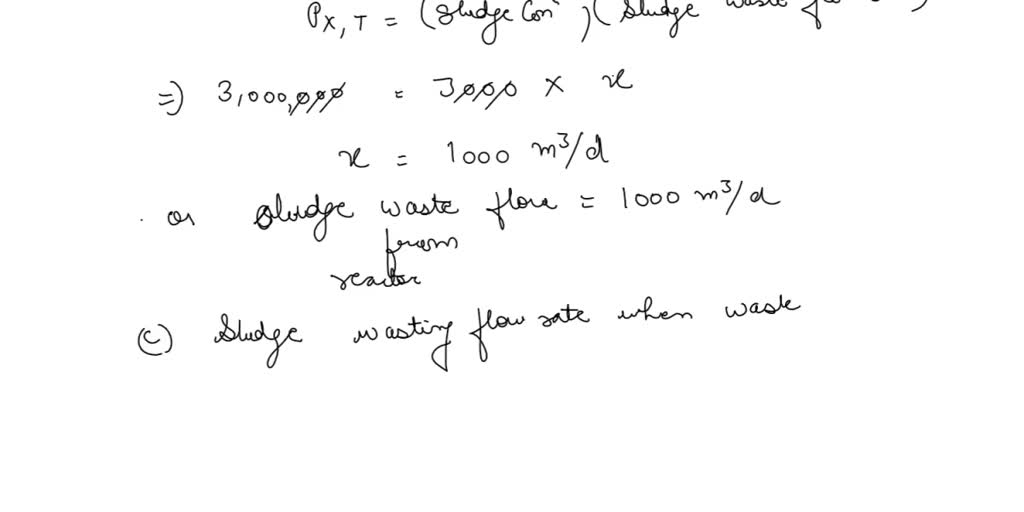 Px,T = (Sludge Con^n)(Sludge waste
=) 3,000,000 = 3000 × x
x = 1000 m³/d
or sludge waste flow = 1000 m³/d
from
reactor
(c) Sludge wasting flow rate when waste